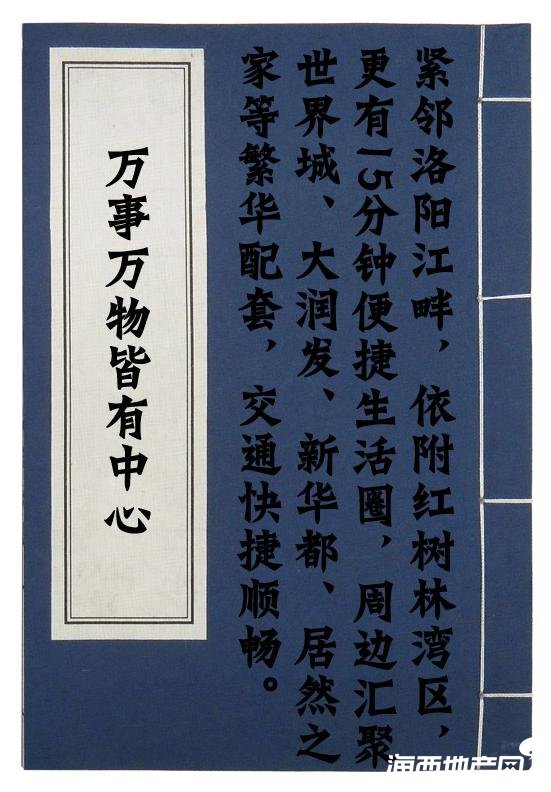 紧邻洛阳江畔，依附红树林湾区，
更有15分钟便捷生活圈，周边汇聚
世界城、大润发、新华都、居然之
家等繁华配套，交通快捷顺畅。
万事万物皆有中心
海西地产网